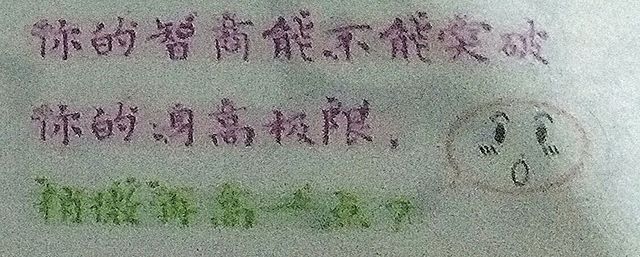 你的智商能不能突破
你的身高极限,
稍微再高一点?